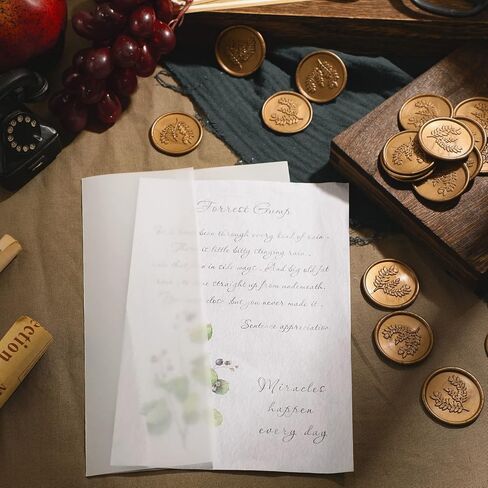 Forrest Gump
been through every kind of rain.
little bitty stinging rain.
rain that in side ways. And big old fat
straight up from underneath.
but you never made it.
Sentence appreciation
Miracles
happen
every day
ction